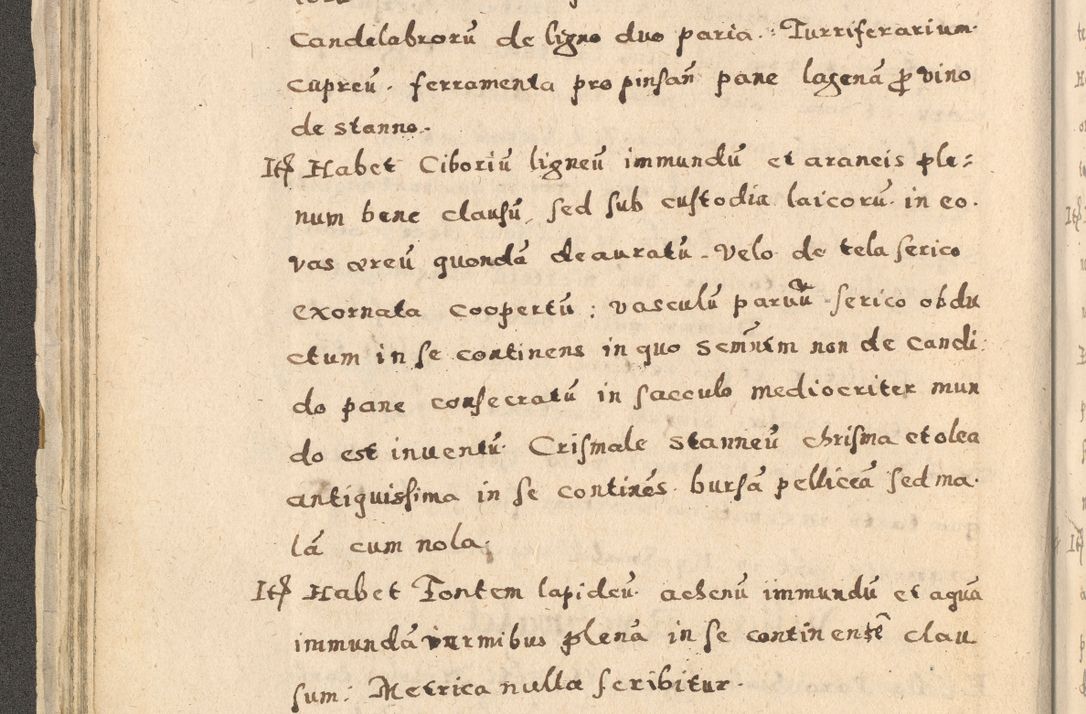 Candelabrorū de ligno duo paria. Turriferarium
cupreū. ferramenta pro pinsan̄ pane lagenā ꝓ vino
de stanno.
Itꝫ Habet Ciboriū ligneū immundū et araneis ple=
num bene clausū, sed sub custodia laicorū. in eo.
vas æreū quondā deauratū. Velo de tela serico
exornata coopertū; vasculū paruū serico obdu
ctum in se continens in quo non de candi
do pane consecratū in sacculo mediocriter mun
do est inuentū. Crismale stanneū chrisma et olea
antiquissima in se continēs. bursā pelliceā sed ma.
lā cum nola;
Itꝫ Habet Fontem lapideū. achenū immundū et aquā
immundā vermibus plenā in se continentē clau
sum: Metrica nulla scribitur.